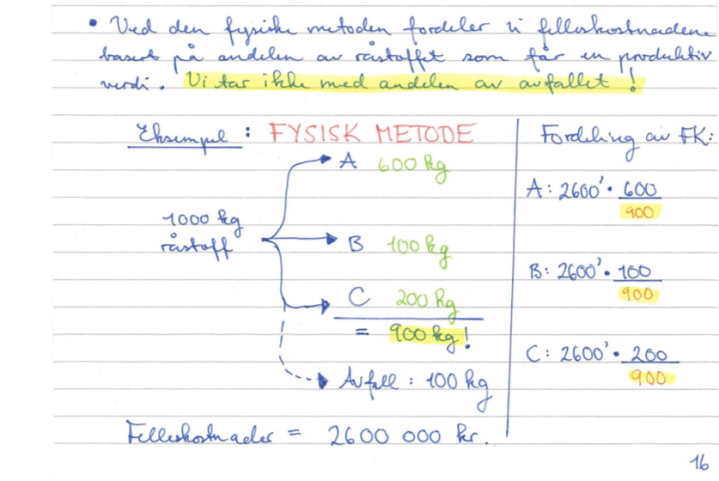 • Ved den fysiske metoden fordeler vi felleskostnadene
basert på andelen av råstoffet som får en produktiv
verdi. Vi tar ikke med andelen av avfallet!
Eksempel: FYSISK METODE
A 600 kg
1000 kg
råstoff
B 100 kg
C 200 kg
= 900 kg!
Avfall: 100 kg
Felleskostnader = 2600 000 kr.
Fordeling av FK:
A: 2600' · 600
900
B: 2600' · 100
900
C: 2600' · 200
900
16